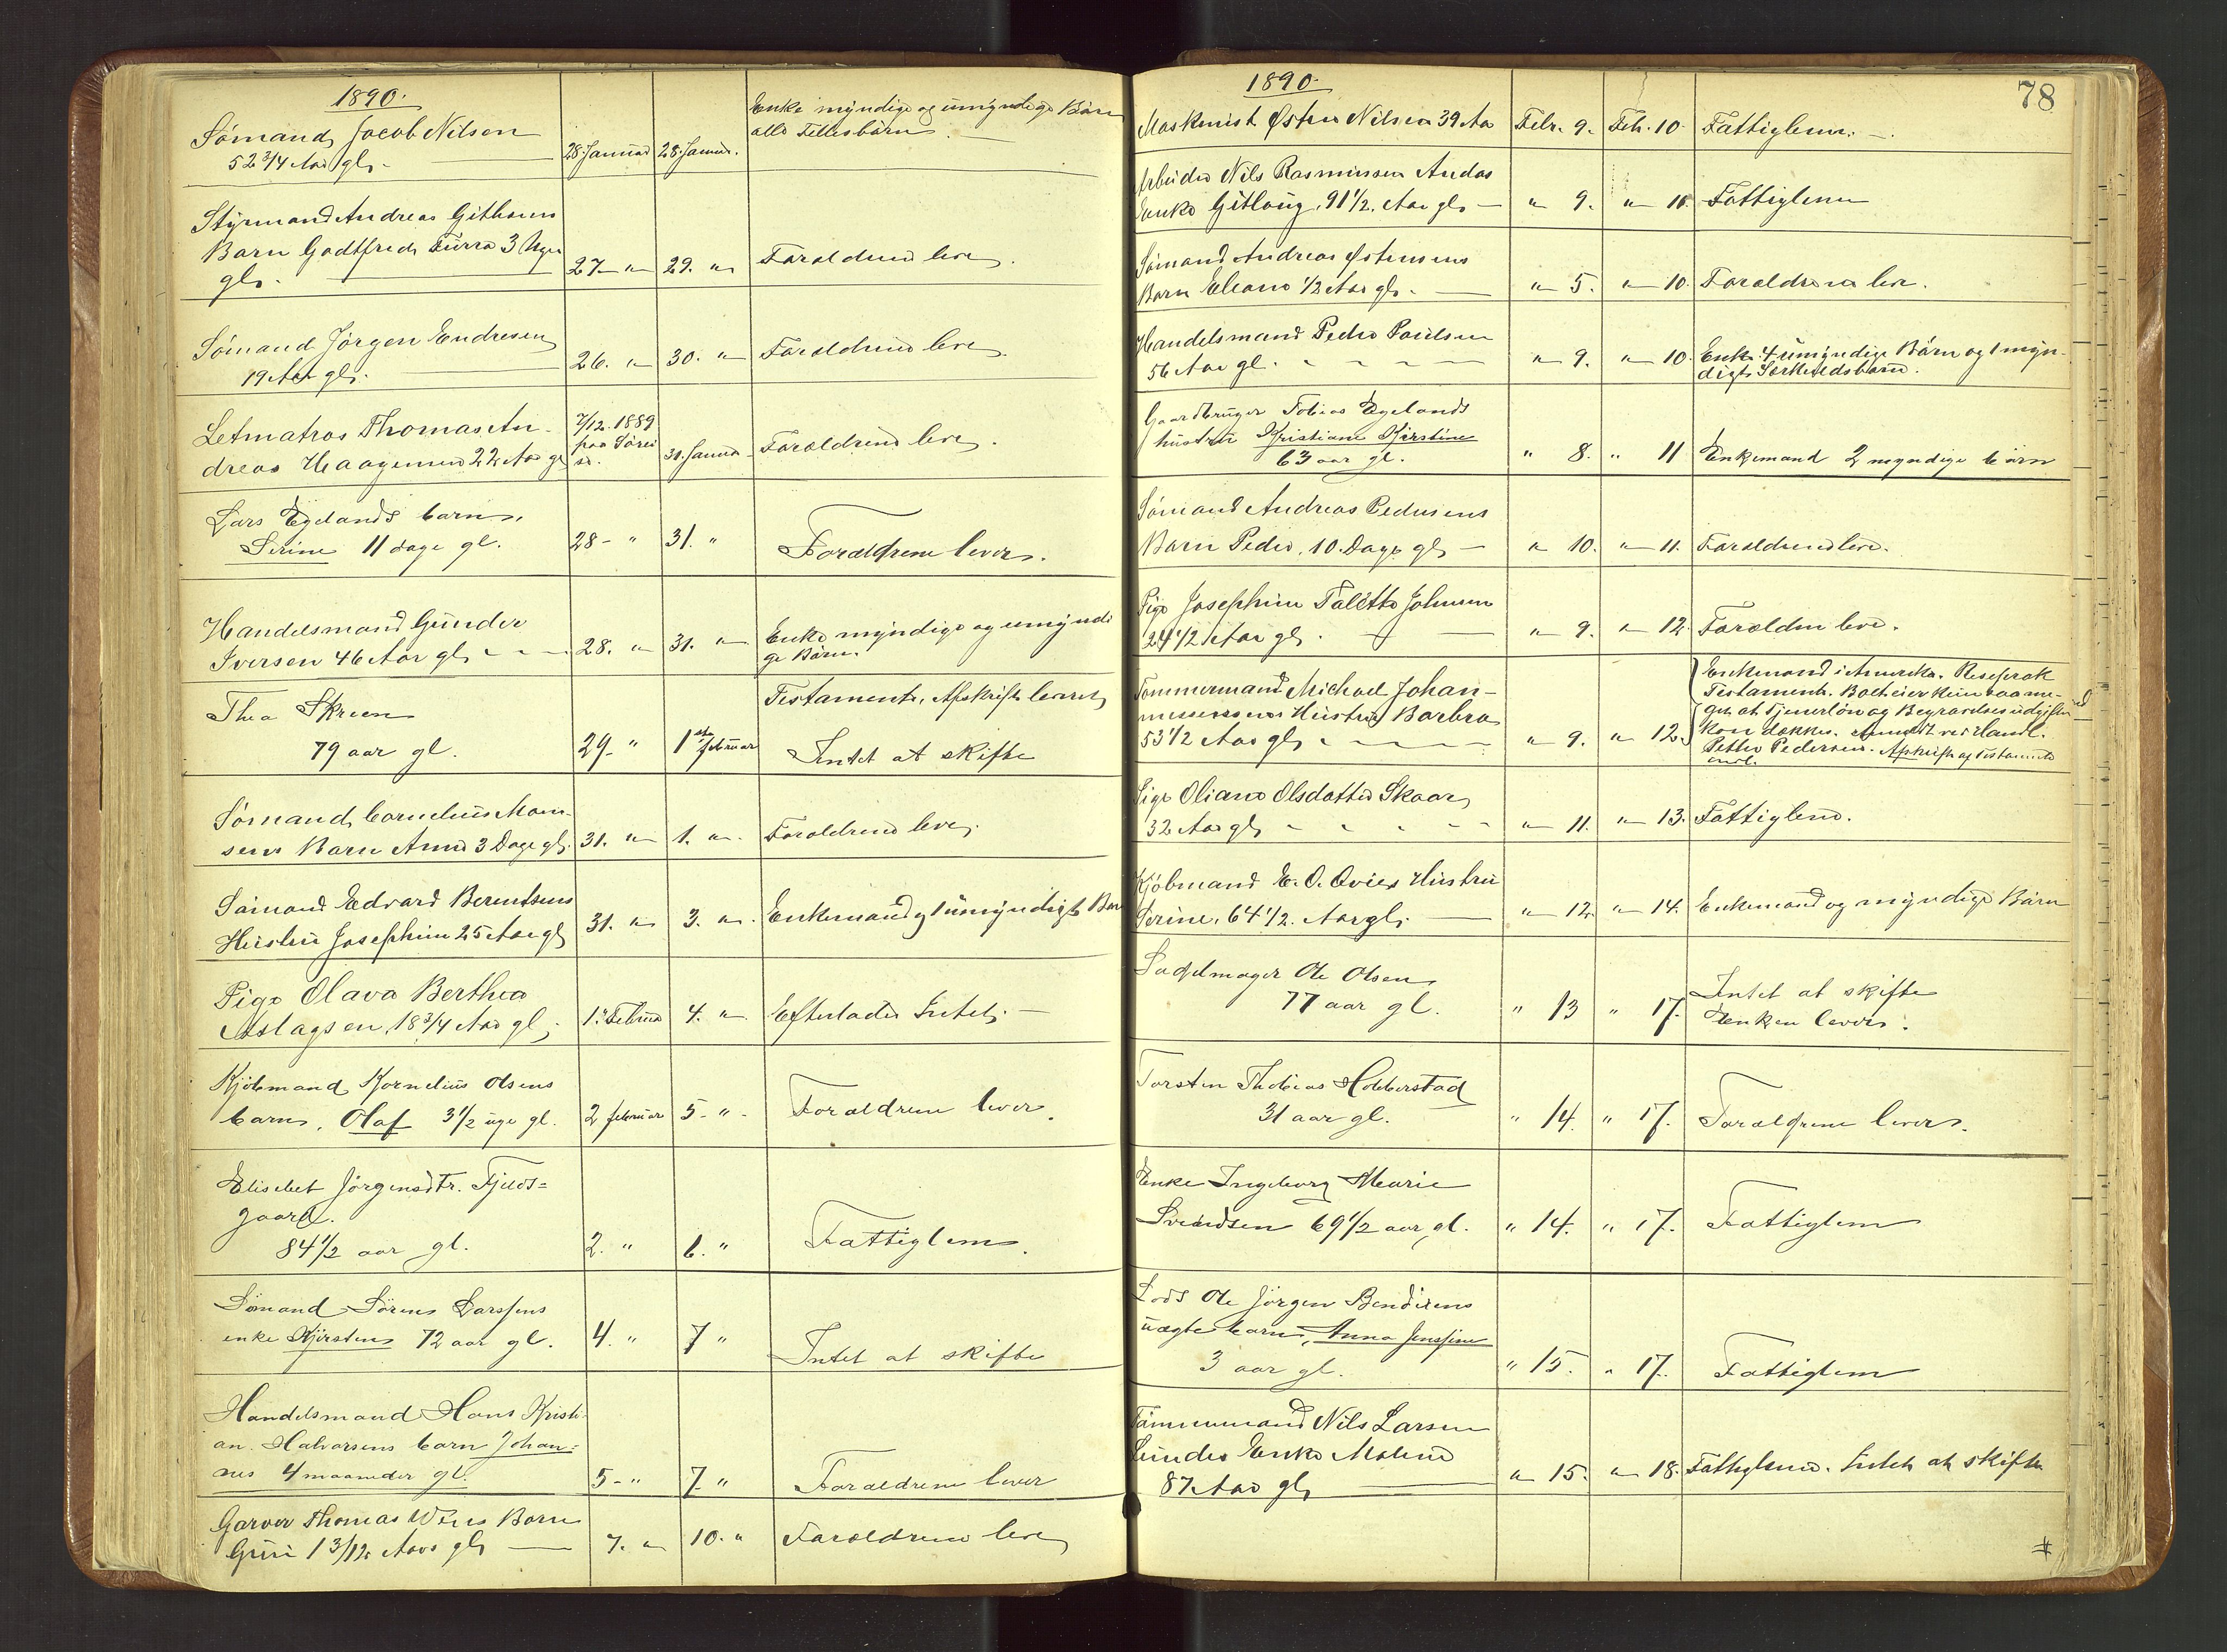 1890.
Sømand Jacob Nilsen
52 3/4 Aar gl. 28. Januar 28. Januar.
Enke myndige og umyndige Børn
alle Fellesbørn.
Styrmand Andreas
Barn Godtfred 3 Uger
gl. 27 " 29. " Forældrene leve.
Sømand Jørgen Endresen
19 Aar gl. 26. " 30. " Forældrene leve.
Letmatros Thomas An-
dreas Haagensen 22 Aar gl
7/12. 1889
paa Sørei
se. 31. Januar Forældrene leve.
Lars Egelands barn,
Serine 11 dage gl. 28 - " 31. " Forældrene lever.
Handelsmand Gunder
Iversen 46 Aar gl. 28. " 31. " Enke myndige og umyndi
ge Børn.
Thea Skreen
79 aar gl. 29. " 1ste februar
Testament, Afskrift leveret
Intet at skifte
Sømand Cornelius Mon-
sens Barn Anna 3 Dage gl. 31. " 1. " Forældrene leve.
Sømand Edvard Berentsens
Hustru Josephine 25 Aar gl 31. " 3. " Enkemand og 1 umyndigt Barn
Pige Olava Berthea
Aslagsen, 18 3/4 Aar gl. 1. Februar 4. " Efterlader Intet. —
Kjøbmand Kornelius Olsens
barn, Olaf 3 1/2 uge gl. 2 februar 5 - " - Forældrene lever.
Elisebet Jørgensdtr. Fjelds=
gaard.
84 1/2 aar gl. 2. " 6. " Fattiglem.
Sømand Sørens Larssens
enke Kjirstens 72 aar gl. 4. " 7 " Intet at skifte
Handelsmand Hans Kristi-
an. Halvorsens barn Johan=
nes 4 maaneder gl. 5 - " 7 " Forældrene lever
Garver Thomas Barn
Guri 1 3/12 Aars gl. 7. " 10. " Forældrene leve
1890.
78
Maskinist Østen Nilsen 39 Aar Febr. 9. Feb. 10. Fattiglem. —
Arbeider Nils Rasmussen Andas
Enke Gitlaug, 91 1/2, Aar gl. — " 9. " 10. Fattiglem
Sømand Andreas Østensens
Barn Eleano 1/2 Aar gl. — " 5. " 10. Forældrene leve.
Handelsmand Peder Poulsen
56 Aar gl. " 9. " 10. Enke. 4 umyndige Børn og 1 myn-
digt Særkuldsbarn.
Gaardbruger Tobias Egelands
hustru Kristiane Kirstine
63 aar gl. " 8. " 11 Enkemand 2 myndige børn
Sømand Andreas Pedersens
Barn Peder, 10. Dage gl. — " 10. " 11. Forældrene leve.
Pige Josephine Talette Johnsen
24 1/2 Aar gl. " 9. " 12. Forældre leve.
Tømmermand Michael Johan-
nessens Hustru Barbra
53 1/2 Aar gl. " 9. " 12.
Enkemand i Amerika.
Testament. Boet eier kun saa me-
get at Tjenerløn og Begravelsesudgifter
kan dækkes. Anmeldt ved Handl.
Petter Pedersen. Afskrift af Testamente
Pige Oliane Olsdatter Skaar,
32 Aar gl. " 11. " 13. Fattiglem.
Kjøbmand E. O. Hustru
Serine, 64 1/2. Aar gl. — " 12. " 14. Enkemand og myndige Børn
Sadelmager Ole Olsen,
77 aar gl. " 13 " 17. Intet at skifte
Enken lever.
Torsten Thobias Hobberstad
31 aar gl. " 14. " 17. Forældrene lever.
Enke Ingeborg Marie
Svendsen 69 1/2 aar gl. " 14. " 17. Fattiglem
Lods Ole Jørgen Bendixens
uægte barn, Anna Jensine
3 aar gl. " 15. " 17. Fattiglem
Tømmermand Nils Larsen
Lundes Enke Malene
87 Aar gl. " 15. " 18. Fattiglem. Intet at skifte
#